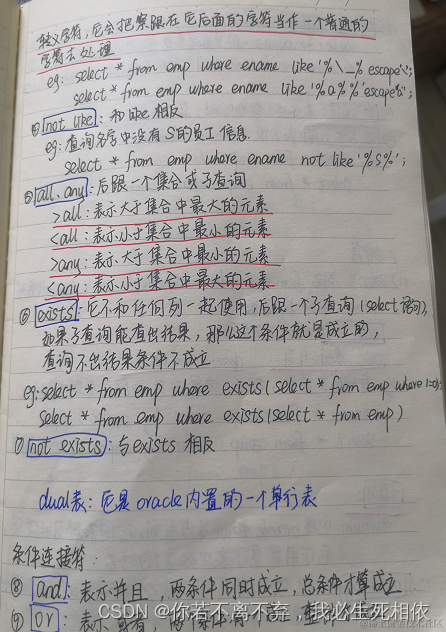 转义字符,它会把紧跟在它后面的字符当作一个普通的
字符去处理
eg: select * from emp where ename like '%\_%' escape'\';
select * from emp where ename like '%a%%' escape'a';
④ not like: 和like 相反
eg: 查询名字中没有S的员工信息.
select * from emp where ename not like '%S%';
⑤ all. any: 后跟一个集合或子查询
>all: 表示大于集合中最大的元素
<all: 表示小于集合中最小的元素
>any: 表示大于集合中最小的元素
<any: 表示小于集合中最大的元素
⑥ exists: 它不和任何列一起使用,后跟一个子查询(select 语句),
如果子查询能查出结果,那么这个条件就是成立的,
查询不出结果条件不成立
eg: select * from emp where exists(select * from emp where 1=0);
select * from emp where exists(select * from emp)
⑦ not exists: 与exists 相反
dual表: 它是oracle内置的一个单行表
条件连接符:
⑧ and: 表示并且,两条件同时成立,总条件才算成立
⑨ or: 表示或者,
CSDN @你若不离不弃,我必生死相依